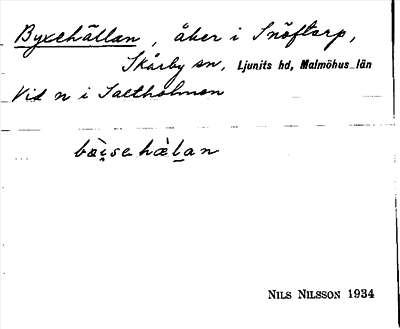 Byxehällan, åker i Snöftarp,
Skårby sn, Ljunits hd, Malmöhus län
Vid n i Saltholmen
bæ̀i̯sehæ̀lan
NILS NILSSON 1934